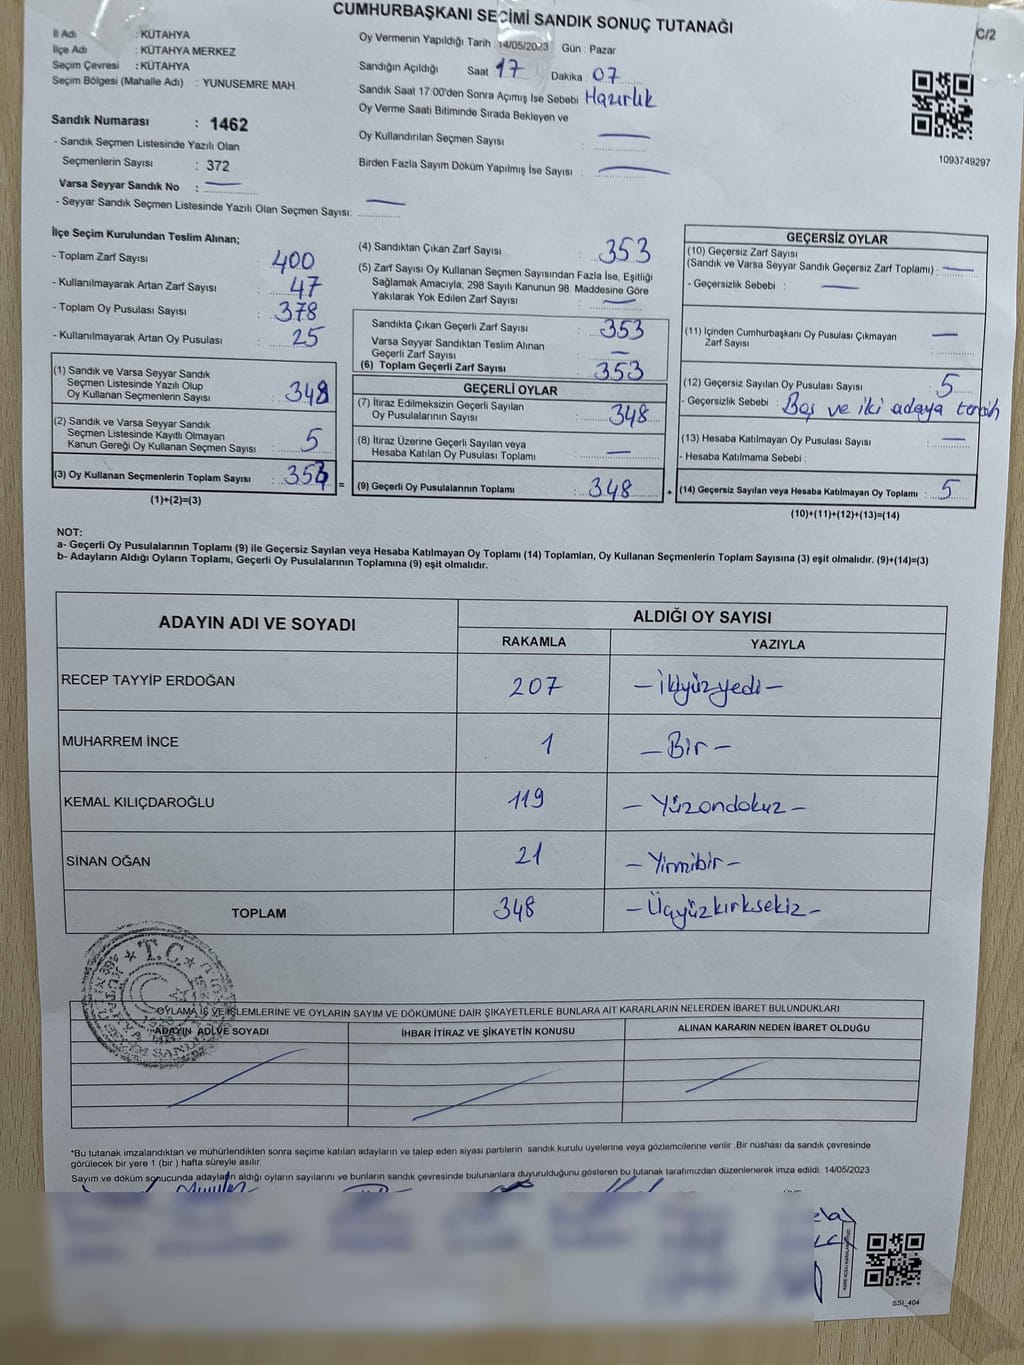 CUMHURBAŞKANI SEÇİMİ SANDIK SONUÇ TUTANAĞI
C/2
İl Adı : KÜTAHYA
İlçe Adı : KÜTAHYA MERKEZ
Seçim Çevresi : KÜTAHYA
Seçim Bölgesi (Mahalle Adı) : YUNUSEMRE MAH.
Sandık Numarası : 1462
- Sandık Seçmen Listesinde Yazılı Olan
Seçmenlerin Sayısı : 372
Varsa Seyyar Sandık No :
- Seyyar Sandık Seçmen Listesinde Yazılı Olan Seçmen Sayısı:
Oy Vermenin Yapıldığı Tarih : 14/05/2023 Gün : Pazar
Sandığın Açıldığı Saat 17 Dakika : 07
Sandık Saat 17:00'den Sonra Açımış İse Sebebi Hazırlık
Oy Verme Saati Bitiminde Sırada Bekleyen ve
Oy Kullandırılan Seçmen Sayısı :
Birden Fazla Sayım Döküm Yapılmış İse Sayısı :
1093749297
İlçe Seçim Kurulundan Teslim Alınan;
- Toplam Zarf Sayısı : 400
- Kullanılmayarak Artan Zarf Sayısı : 47
- Toplam Oy Pusulası Sayısı : 378
- Kullanılmayarak Artan Oy Pusulası : 25
(1) Sandık ve Varsa Seyyar Sandık
Seçmen Listesinde Yazılı Olup
Oy Kullanan Seçmenlerin Sayısı : 348
(2) Sandık ve Varsa Seyyar Sandık
Seçmen Listesinde Kayıtlı Olmayan
Kanun Gereği Oy Kullanan Seçmen Sayısı : 5
(3) Oy Kullanan Seçmenlerin Toplam Sayısı : 353 =
(1)+(2)=(3)
(4) Sandıktan Çıkan Zarf Sayısı : 353
(5) Zarf Sayısı Oy Kullanan Seçmen Sayısından Fazla İse, Eşitliği
Sağlamak Amacıyla; 298 Sayılı Kanunun 98. Maddesine Göre
Yakılarak Yok Edilen Zarf Sayısı :
Sandıkta Çıkan Geçerli Zarf Sayısı : 353
Varsa Seyyar Sandıktan Teslim Alınan
Geçerli Zarf Sayısı :
(6) Toplam Geçerli Zarf Sayısı : 353
GEÇERLİ OYLAR
(7) İtiraz Edilmeksizin Geçerli Sayılan
Oy Pusulalarının Sayısı : 348
(8) İtiraz Üzerine Geçerli Sayılan veya
Hesaba Katılan Oy Pusulası Toplamı :
(9) Geçerli Oy Pusulalarının Toplamı : 348 +
GEÇERSİZ OYLAR
(10) Geçersiz Zarf Sayısı
(Sandık ve Varsa Seyyar Sandık Geçersiz Zarf Toplamı) :
- Geçersizlik Sebebi :
(11) İçinden Cumhurbaşkanı Oy Pusulası Çıkmayan
Zarf Sayısı :
(12) Geçersiz Sayılan Oy Pusulası Sayısı : 5
- Geçersizlik Sebebi : Boş ve iki adaya tercih
(13) Hesaba Katılmayan Oy Pusulası Sayısı :
- Hesaba Katılmama Sebebi :
(14) Geçersiz Sayılan veya Hesaba Katılmayan Oy Toplamı : 5
(10)+(11)+(12)+(13)=(14)
NOT:
a- Geçerli Oy Pusulalarının Toplamı (9) ile Geçersiz Sayılan veya Hesaba Katılmayan Oy Toplamı (14) Toplamları, Oy Kullanan Seçmenlerin Toplam Sayısına (3) eşit olmalıdır. (9)+(14)=(3)
b- Adayların Aldığı Oyların Toplamı, Geçerli Oy Pusulalarının Toplamına (9) eşit olmalıdır.
ADAYIN ADI VE SOYADI
ALDIĞI OY SAYISI
RAKAMLA YAZIYLA
RECEP TAYYİP ERDOĞAN 207 - ikiyüzyedi -
MUHARREM İNCE 1 - Bir -
KEMAL KILIÇDAROĞLU 119 - Yüzondokuz -
SİNAN OĞAN 21 - Yirmibir -
TOPLAM 348 - Üçyüzkırksekiz -
T.C.
OYLAMA İŞ VE İŞLEMLERİNE VE OYLARIN SAYIM VE DÖKÜMÜNE DAİR ŞİKAYETLERLE BUNLARA AİT KARARLARIN NELERDEN İBARET BULUNDUKLARI
ADAYIN ADI VE SOYADI İHBAR İTİRAZ VE ŞİKAYETİN KONUSU ALINAN KARARIN NEDEN İBARET OLDUĞU
*Bu tutanak imzalandıktan ve mühürlendikten sonra seçime katılan adayların ve talep eden siyasi partilerin sandık kurulu üyelerine veya gözlemcilerine verilir. Bir nüshası da sandık çevresinde
görülecek bir yere 1 (bir ) hafta süreyle asılır.
Sayım ve döküm sonucunda adayların aldığı oyların sayılarını ve bunların sandık çevresinde bulunanlara duyurulduğunu gösteren bu tutanak tarafımızdan düzenlenerek imza edildi. 14/05/2023
SSI_404